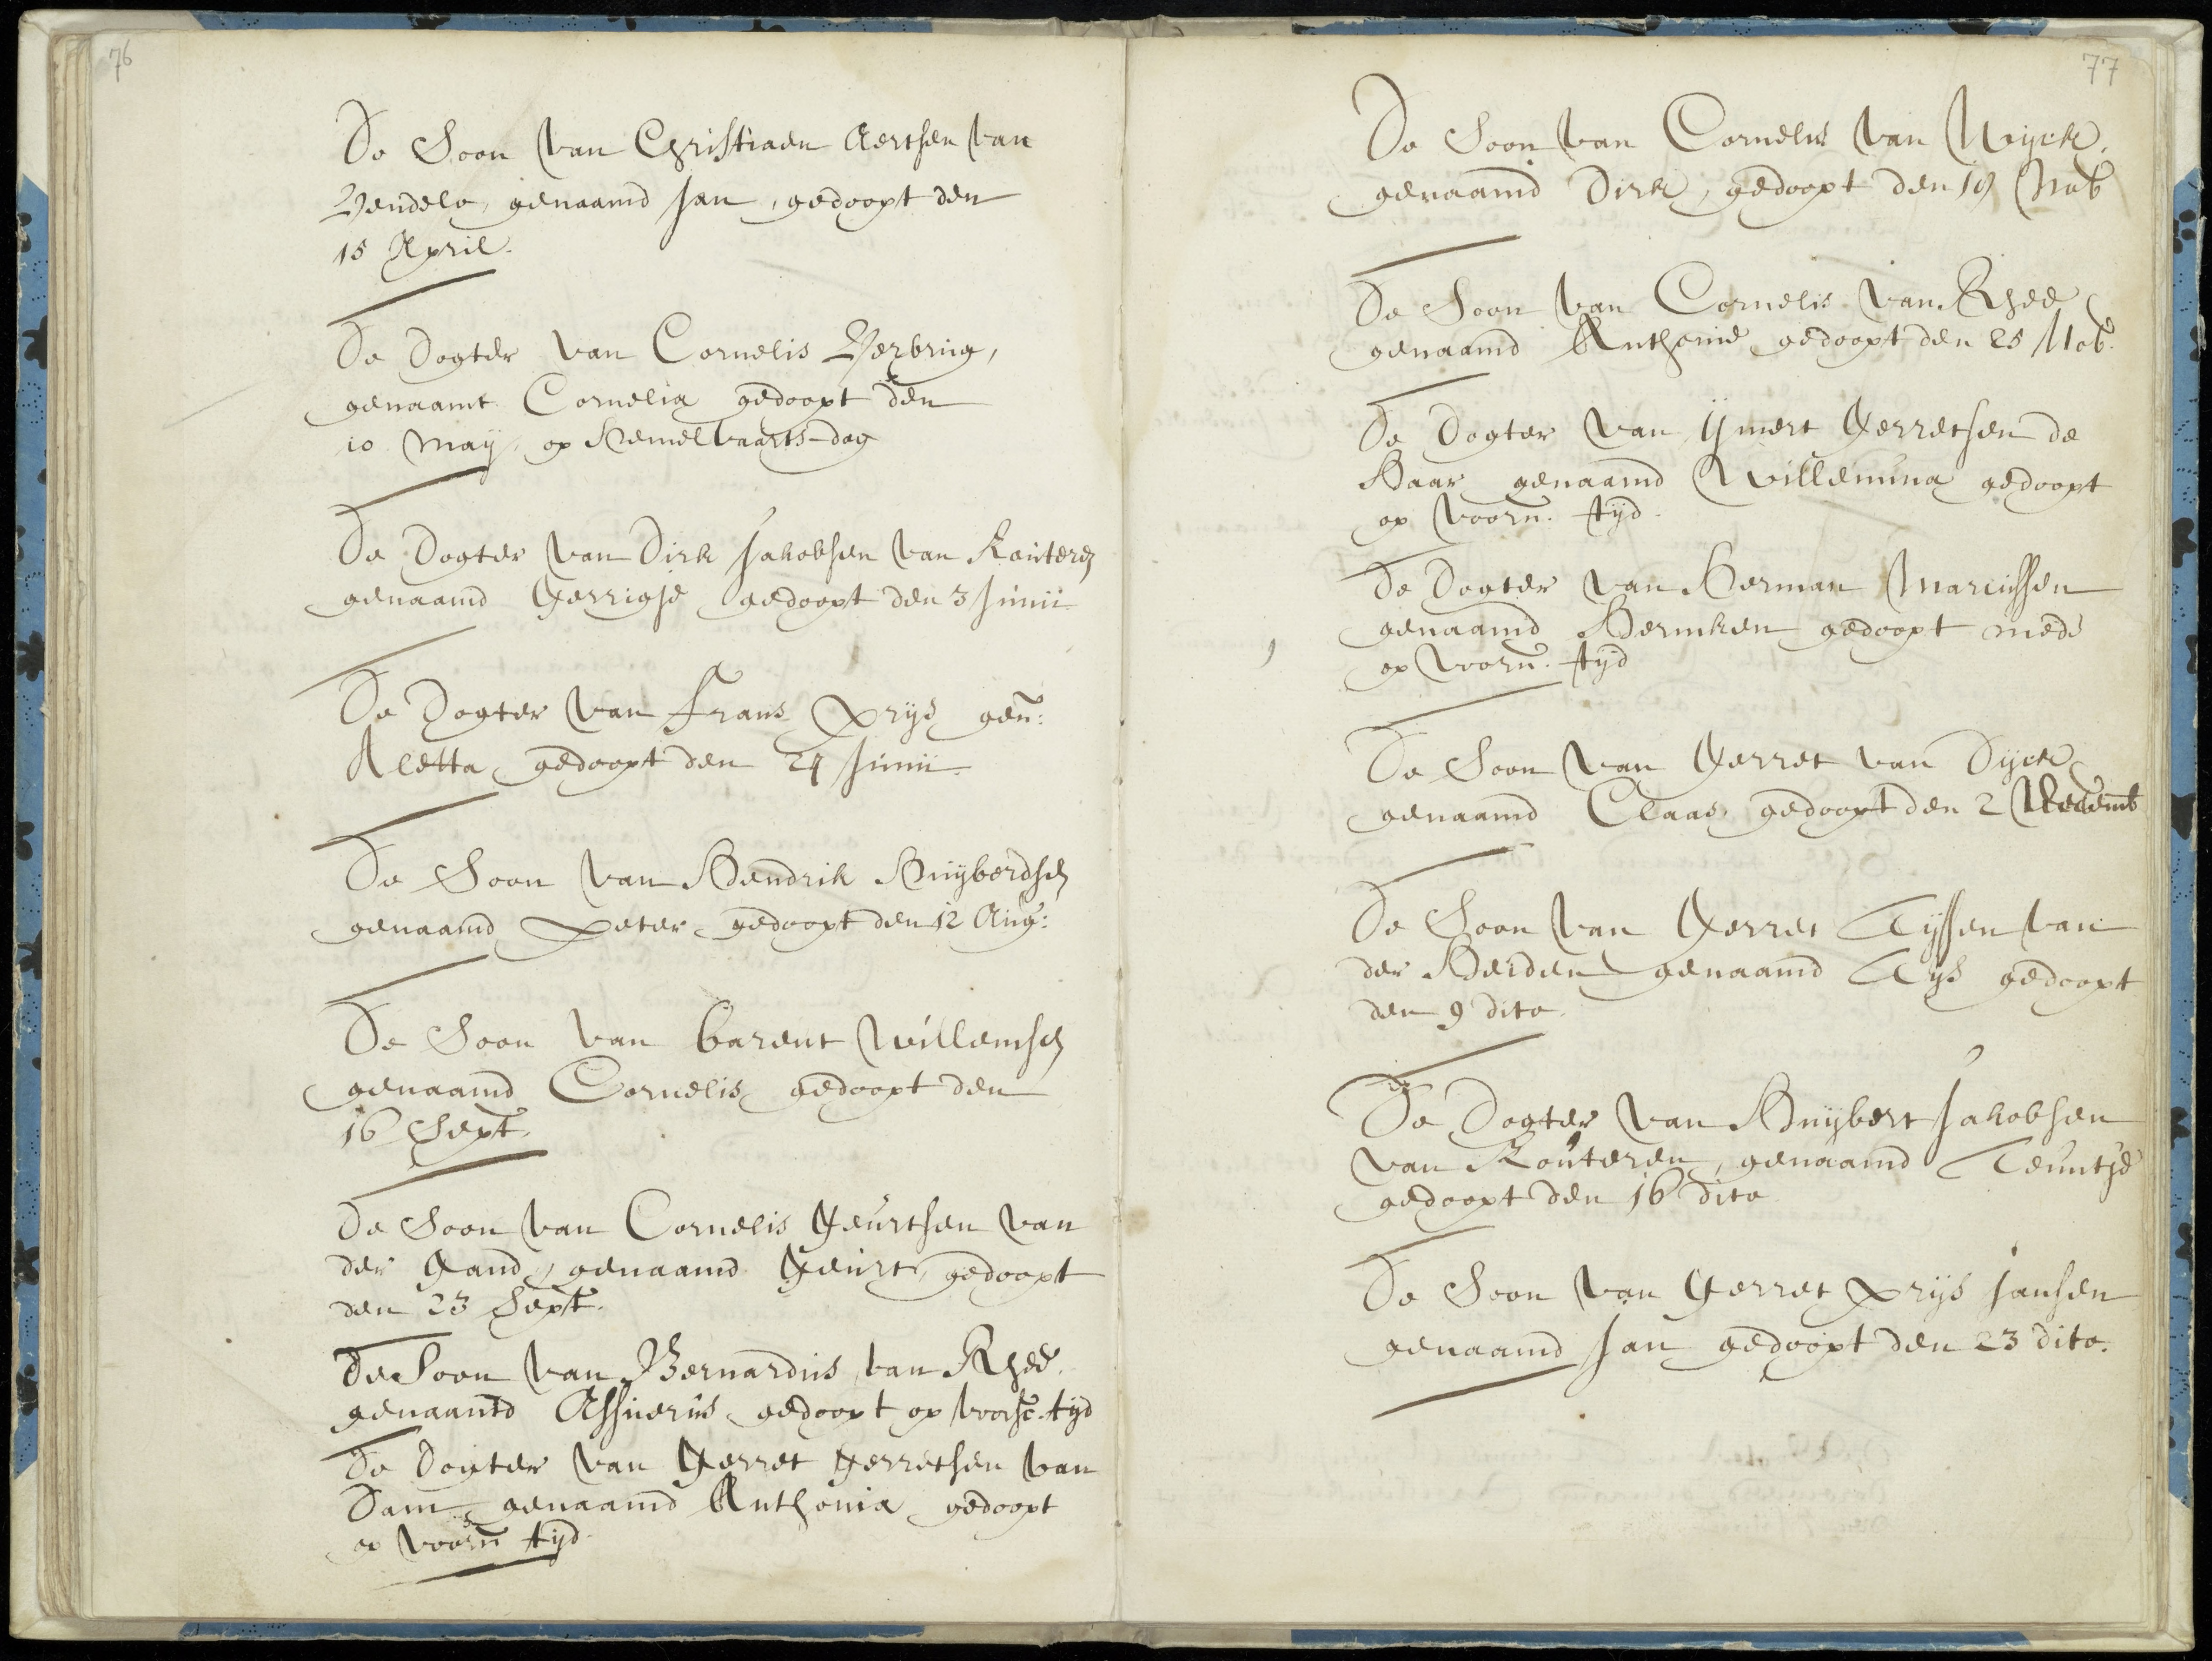 76
De Soon van Christiaen Aertsen van
Bendelo, genaamd Jan, gedoopt den
15 April.
De Dogter van Cornelis Verbrug,
genaamt Cornelia gedoopt den
10 May, op Hemelvaarts-dag
De Dogter van Dirk Jakobsen van Kouteren
genaamd Gerrigje gedoopt den 3 Junii
De Dogter van Frans Prijs gen:
Aletta gedoopt den 24 Junii.
De Soon van Hendrik Huijberdsen
genaamd Peter gedoopt den 12 Aug:
De Soon van Barent Willemsen
genaamd Cornelis gedoopt den
16 Sept.
De Soon van Cornelis Geurtsen van
der Gand, genaamd Geurt, gedoopt
den 23 Sept.
De Soon van Bernardus van Rhee
genaamd Assuerus gedoopt op voorsc. tijd
De Dogter van Gerret Gerretsen van
Dam genaamd Anthonia gedoopt
op voorn tijd.
77
De Soon van Cornelis van Wijck,
genaamd Dirk, gedoopt den 19 Nov
De Soon van Cornelis van Rhee
genaamd Anthonie gedoopt den 25 Nov.
De Dogter van Ymert Gerretsen de
Haar genaamd Willemina gedoopt
op voorn. tijd.
De Dogter van Herman Marcussen
genaamd Hermken gedoopt mede
op voorn. tijd
De Soon van Gerret van Dijck
genaamd Claas gedoopt den 2 Decemb
De Soon van Gerret Tijssen van
der Heiden genaamd Tijs gedoopt
den 9 dito.
De Dogter van Huijbert Jakobsen
van Kouteren, genaamd Teuntje
gedoopt den 16 dito
De Soon van Gerret Prijs Jansen
genaamd Jan gedoopt den 23 dito.